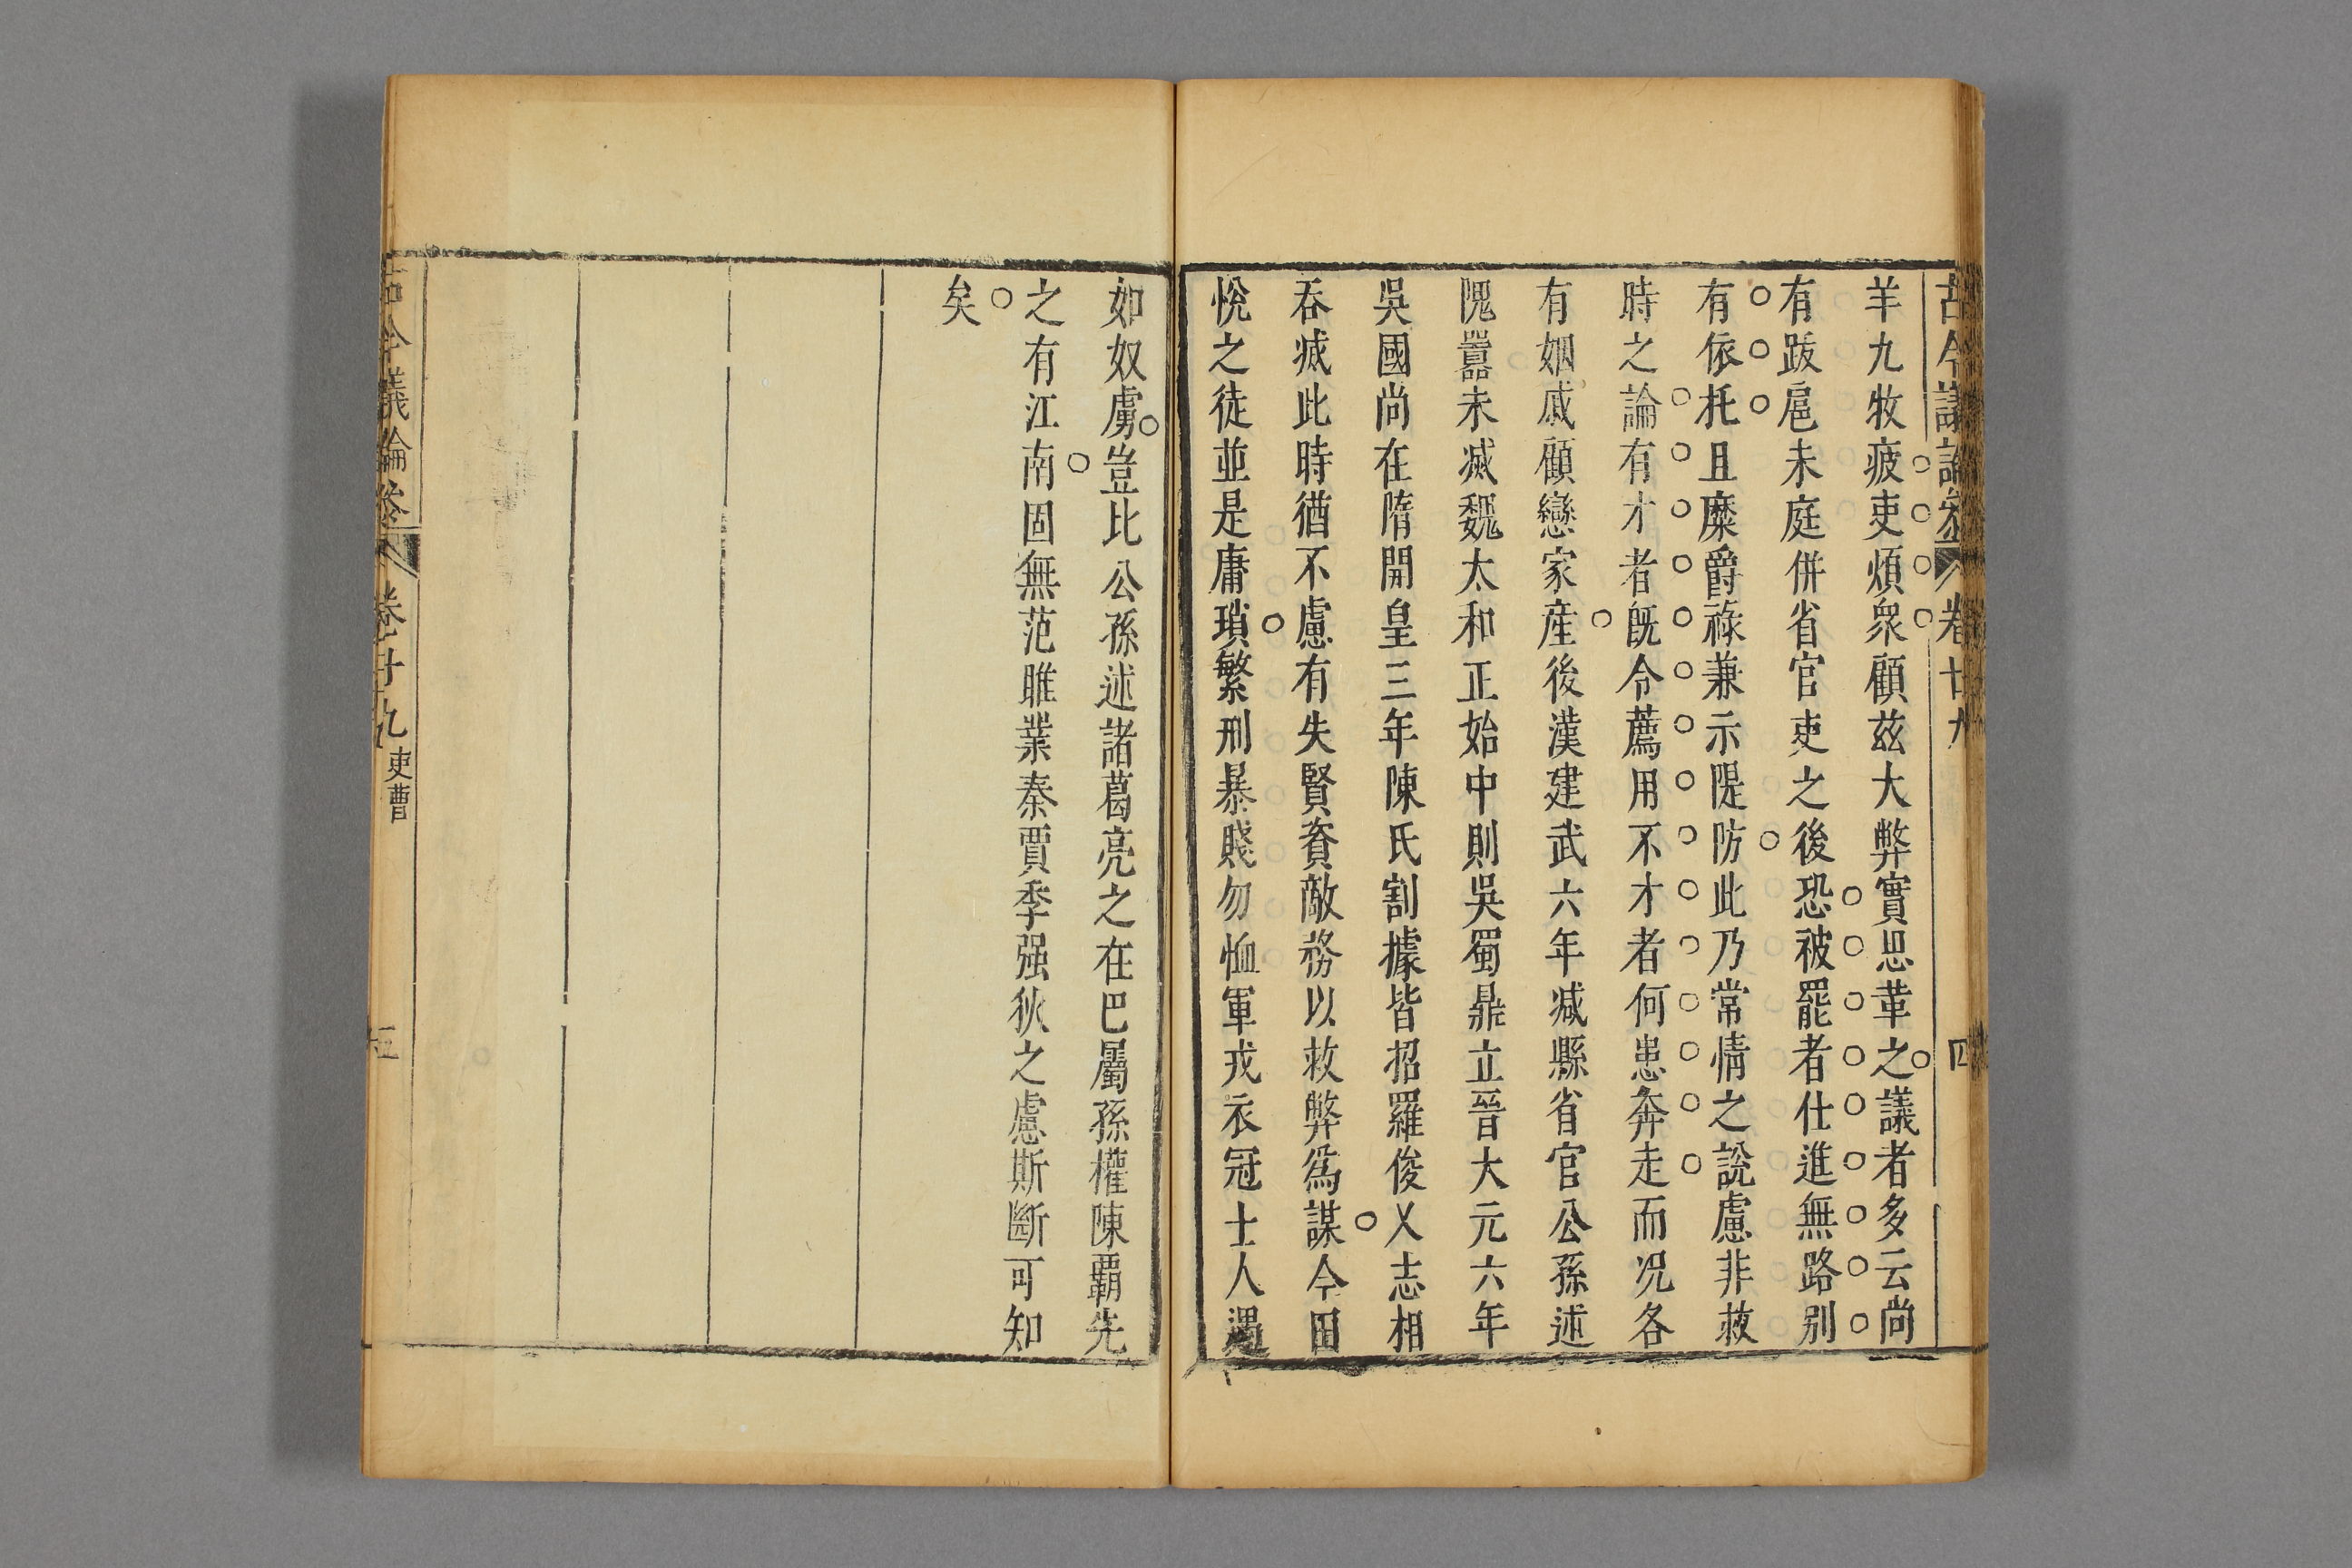 古今議論參 卷廿九 四
羊九牧疲吏煩衆顧茲大弊實思革之議者多云尚
有跋扈未庭併省官吏之後恐被罷者仕進無路別
有依托且縻爵祿兼示隄防此乃常情之說慮非救
時之論有才者既令薦用不才者何患奔走而况各
有姻戚顧戀家產後漢建武六年减縣省官公孫述
隗囂未滅魏太和正始中則吳蜀鼎立晉大元六年
吳國尚在隋開皇三年陳氏割據皆招羅俊乂志相
吞滅此時猶不慮有失賢資敵務以救弊爲謀今田
悅之徒並是庸瑣繁刑暴賤勿恤軍戎衣冠士人遇
如奴虜豈比公孫述諸葛亮之在巴屬孫權陳覇先
之有江南固無范雎業秦賈季强狄之慮斯斷可知
矣
古今議論參 卷廿九 吏曹 五